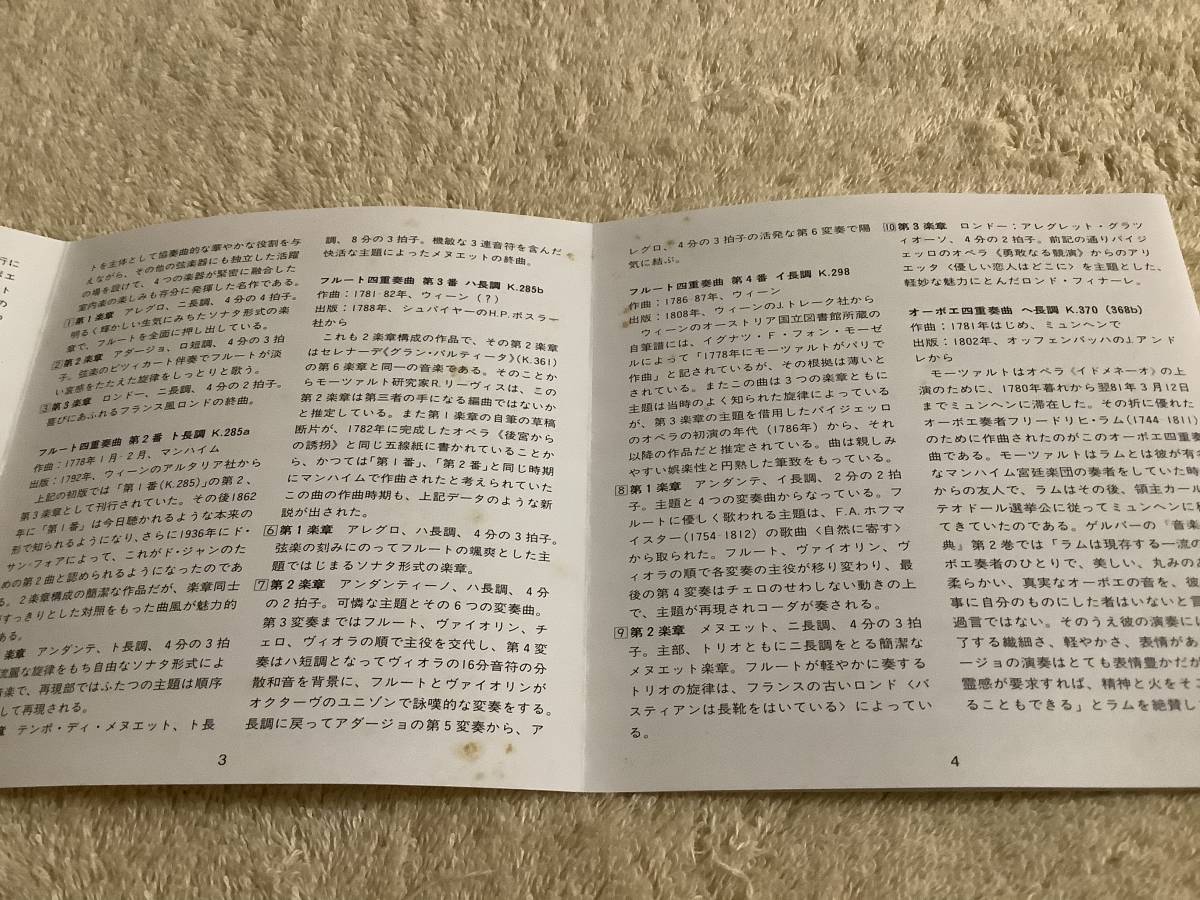 行に
トを主体として協奏曲的な華やかな役割を与
えながら、その他の弦楽器にも独立した活躍
の場を設けて、4つの楽器が緊密に融合した
室内楽の楽しみも存分に発揮した名作である。
1第1楽章 アレグロ、ニ長調、4分の4拍子。
明るく輝かしい生気にみちたソナタ形式の楽
章で、フルートを全面に押し出している。
2第2楽章 アダージョ、ロ短調、4分の3拍
子。弦楽のピツィカート伴奏でフルートが淡
い哀感をたたえた旋律をしっとりと歌う。
3第3楽章 ロンドー、ニ長調、4分の2拍子。
喜びにあふれるフランス風ロンドの終曲。
フルート四重奏曲 第2番 ト長調 K.285a
作曲：1778年1月・2月、マンハイム
出版：1792年、ウィーンのアルタリア社から
上記の初版では「第1番(K.285)」の第2、
第3楽章として刊行されていた。その後1862
年に「第1番」は今日聴かれるような本来の
形で知られるようになり、さらに1936年にド・
サン・フォアによって、これがド・ジャンのた
めの第2曲と認められるようになったのであ
る。2楽章構成の簡潔な作品だが、楽章同士
がすっきりとした対照をもった曲風が魅力的
ある。
楽章 アンダンテ、ト長調、4分の3拍
流麗な旋律をもち自由なソナタ形式によ
音楽で、再現部ではふたつの主題は順序
して再現される。
章 テンポ・ディ・メヌエット、ト長
調、8分の3拍子。機敏な3連音符を含んだ
快活な主題によったメヌエットの終曲。
フルート四重奏曲 第3番 ハ長調 K.285b
作曲：1781・82年、ウィーン（？）
出版：1788年、シュパイヤーのH.P.ボスラー
社から
これも2楽章構成の作品で、その第2楽章
はセレナーデ《グラン・パルティータ》(K.361)
の第6楽章と同一の音楽である。そのことか
らモーツァルト研究家R.リーヴィスは、この
第2楽章は第三者の手になる編曲ではないか
と推定している。また第1楽章の自筆の草稿
断片が、1782年に完成したオペラ《後宮から
の誘拐》と同じ五線紙に書かれていることか
ら、かつては「第1番」、「第2番」と同じ時期
にマンハイムで作曲されたと考えられていた
この曲の作曲時期も、上記データのような新
説が出された。
6第1楽章 アレグロ、ハ長調、4分の3拍子。
弦楽の刻みにのってフルートの颯爽とした主
題ではじまるソナタ形式の楽章。
7第2楽章 アンダンティーノ、ハ長調、4分
の2拍子。可憐な主題とその6つの変奏曲。
第3変奏まではフルート、ヴァイオリン、チ
ェロ、ヴィオラの順で主役を交代し、第4変
奏はハ短調となってヴィオラの16分音符の分
散和音を背景に、フルートとヴァイオリンが
オクターヴのユニゾンで詠嘆的な変奏をする。
長調に戻ってアダージョの第5変奏から、ア
3
レグロ、4分の3拍子の活発な第6変奏で陽
気に結ぶ。
フルート四重奏曲 第4番 イ長調 K.298
作曲：1786・87年、ウィーン
出版：1808年、ウィーンのJ.トレーク社から
ウィーンのオーストリア国立図書館所蔵の
自筆譜には、イグナツ・F・フォン・モーゼ
ルによって「1778年にモーツァルトがパリで
作曲」と記されているが、その根拠は薄いと
されている。またこの曲は3つの楽章ともに
主題は当時のよく知られた旋律によっている
が、第3楽章の主題を借用したパイジェッロ
のオペラの初演の年代（1786年）から、それ
以降の作品だと推定されている。曲は親しみ
やすい娯楽性と円熟した筆致をもっている。
8第1楽章 アンダンテ、イ長調、2分の2拍
子。主題と4つの変奏曲からなっている。フ
ルートに優しく歌われる主題は、F.A.ホフマ
イスター(1754-1812)の歌曲〈自然に寄す〉
から取られた。フルート、ヴァイオリン、ヴ
ィオラの順で各変奏の主役が移り変わり、最
後の第4変奏はチェロのせわしない動きの上
で、主題が再現されコーダが奏される。
9第2楽章 メヌエット、ニ長調、4分の3拍
子。主部、トリオともにニ長調をとる簡潔な
メヌエット楽章。フルートが軽やかに奏する
トリオの旋律は、フランスの古いロンド〈バ
スティアンは長靴をはいている〉によってい
る。
10第3楽章 ロンドー：アレグレット・グラツ
ィオーソ、4分の2拍子。前記の通りパイジ
ェッロのオペラ《勇敢なる競演》からのアリ
エッタ〈優しい恋人はどこに〉を主題とした、
軽妙な魅力にとんだロンド・フィナーレ。
オーボエ四重奏曲 ヘ長調 K.370 (368b)
作曲：1781年はじめ、ミュンヘンで
出版：1802年、オッフェンバッハのJ.アンド
レから
モーツァルトはオペラ《イドメネーオ》の上
演のために、1780年暮れから翌81年3月12日
までミュンヘンに滞在した。その折に優れた
オーボエ奏者フリードリヒ・ラム(1744-1811)
のために作曲されたのがこのオーボエ四重奏
曲である。モーツァルトはラムとは彼が有名
なマンハイム宮廷楽団の奏者をしていた時
からの友人で、ラムはその後、領主カール
テオドール選挙公に従ってミュンヘンに移
てきていたのである。ゲルバーの『音楽
典』第2巻では「ラムは現存する一流の
ボエ奏者のひとりで、美しい、丸みのあ
柔らかい、真実なオーボエの音を、彼
事に自分のものにした者はいないと言
過言ではない。そのうえ彼の演奏に
了する繊細さ、軽やかさ、表情があ
ージョの演奏はとても表情豊かだが
霊感が要求すれば、精神と火をそこ
ることもできる」とラムを絶賛して
4